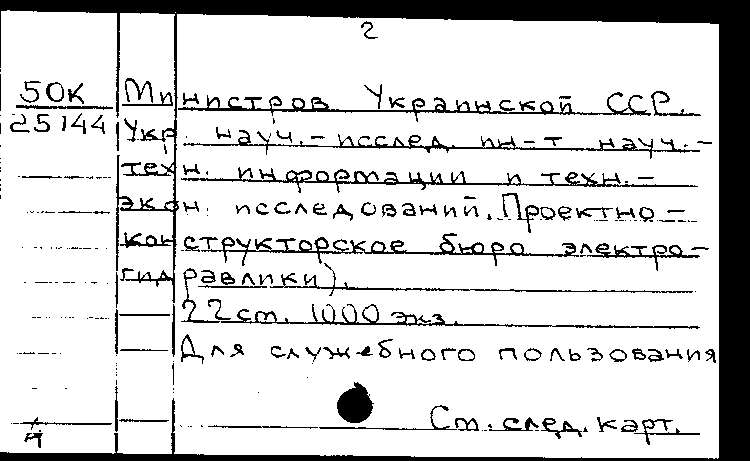 2
50К Министров Украинской ССР.
25144 Укр. науч.-исслед. ин-т науч.-
техн. информации и техн.-
экон. исследований. Проектно-
конструкторское бюро электро-
гидравлики).
22 ст. 1000 экз.
Для служебного пользования
См. след. карт.